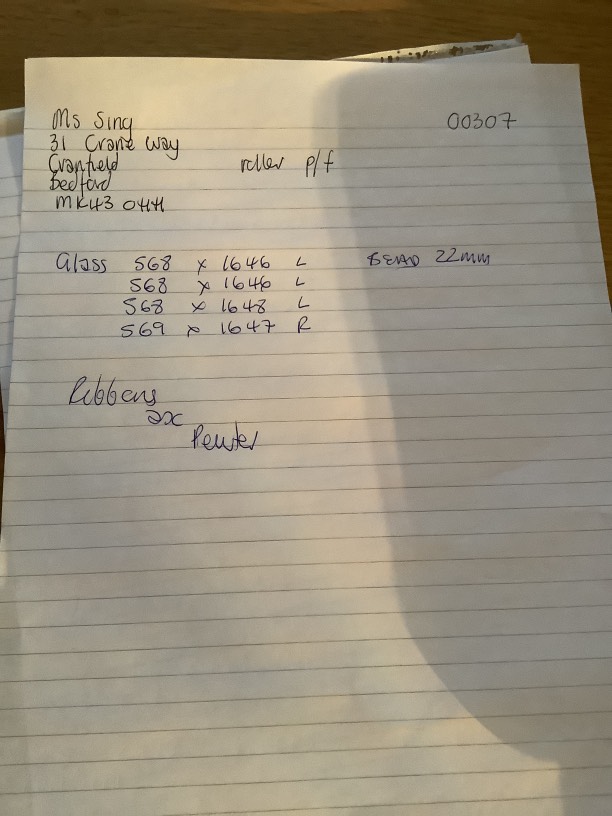 Ms Sing 00307
31 Crane way
Cranfield roller p/f
Bedford
MK43 0HH
Glass 568 x 1646 L BEAD 22mm
568 x 1646 L
568 x 1648 L
569 x 1647 R
Ribbens
2x
Pewter